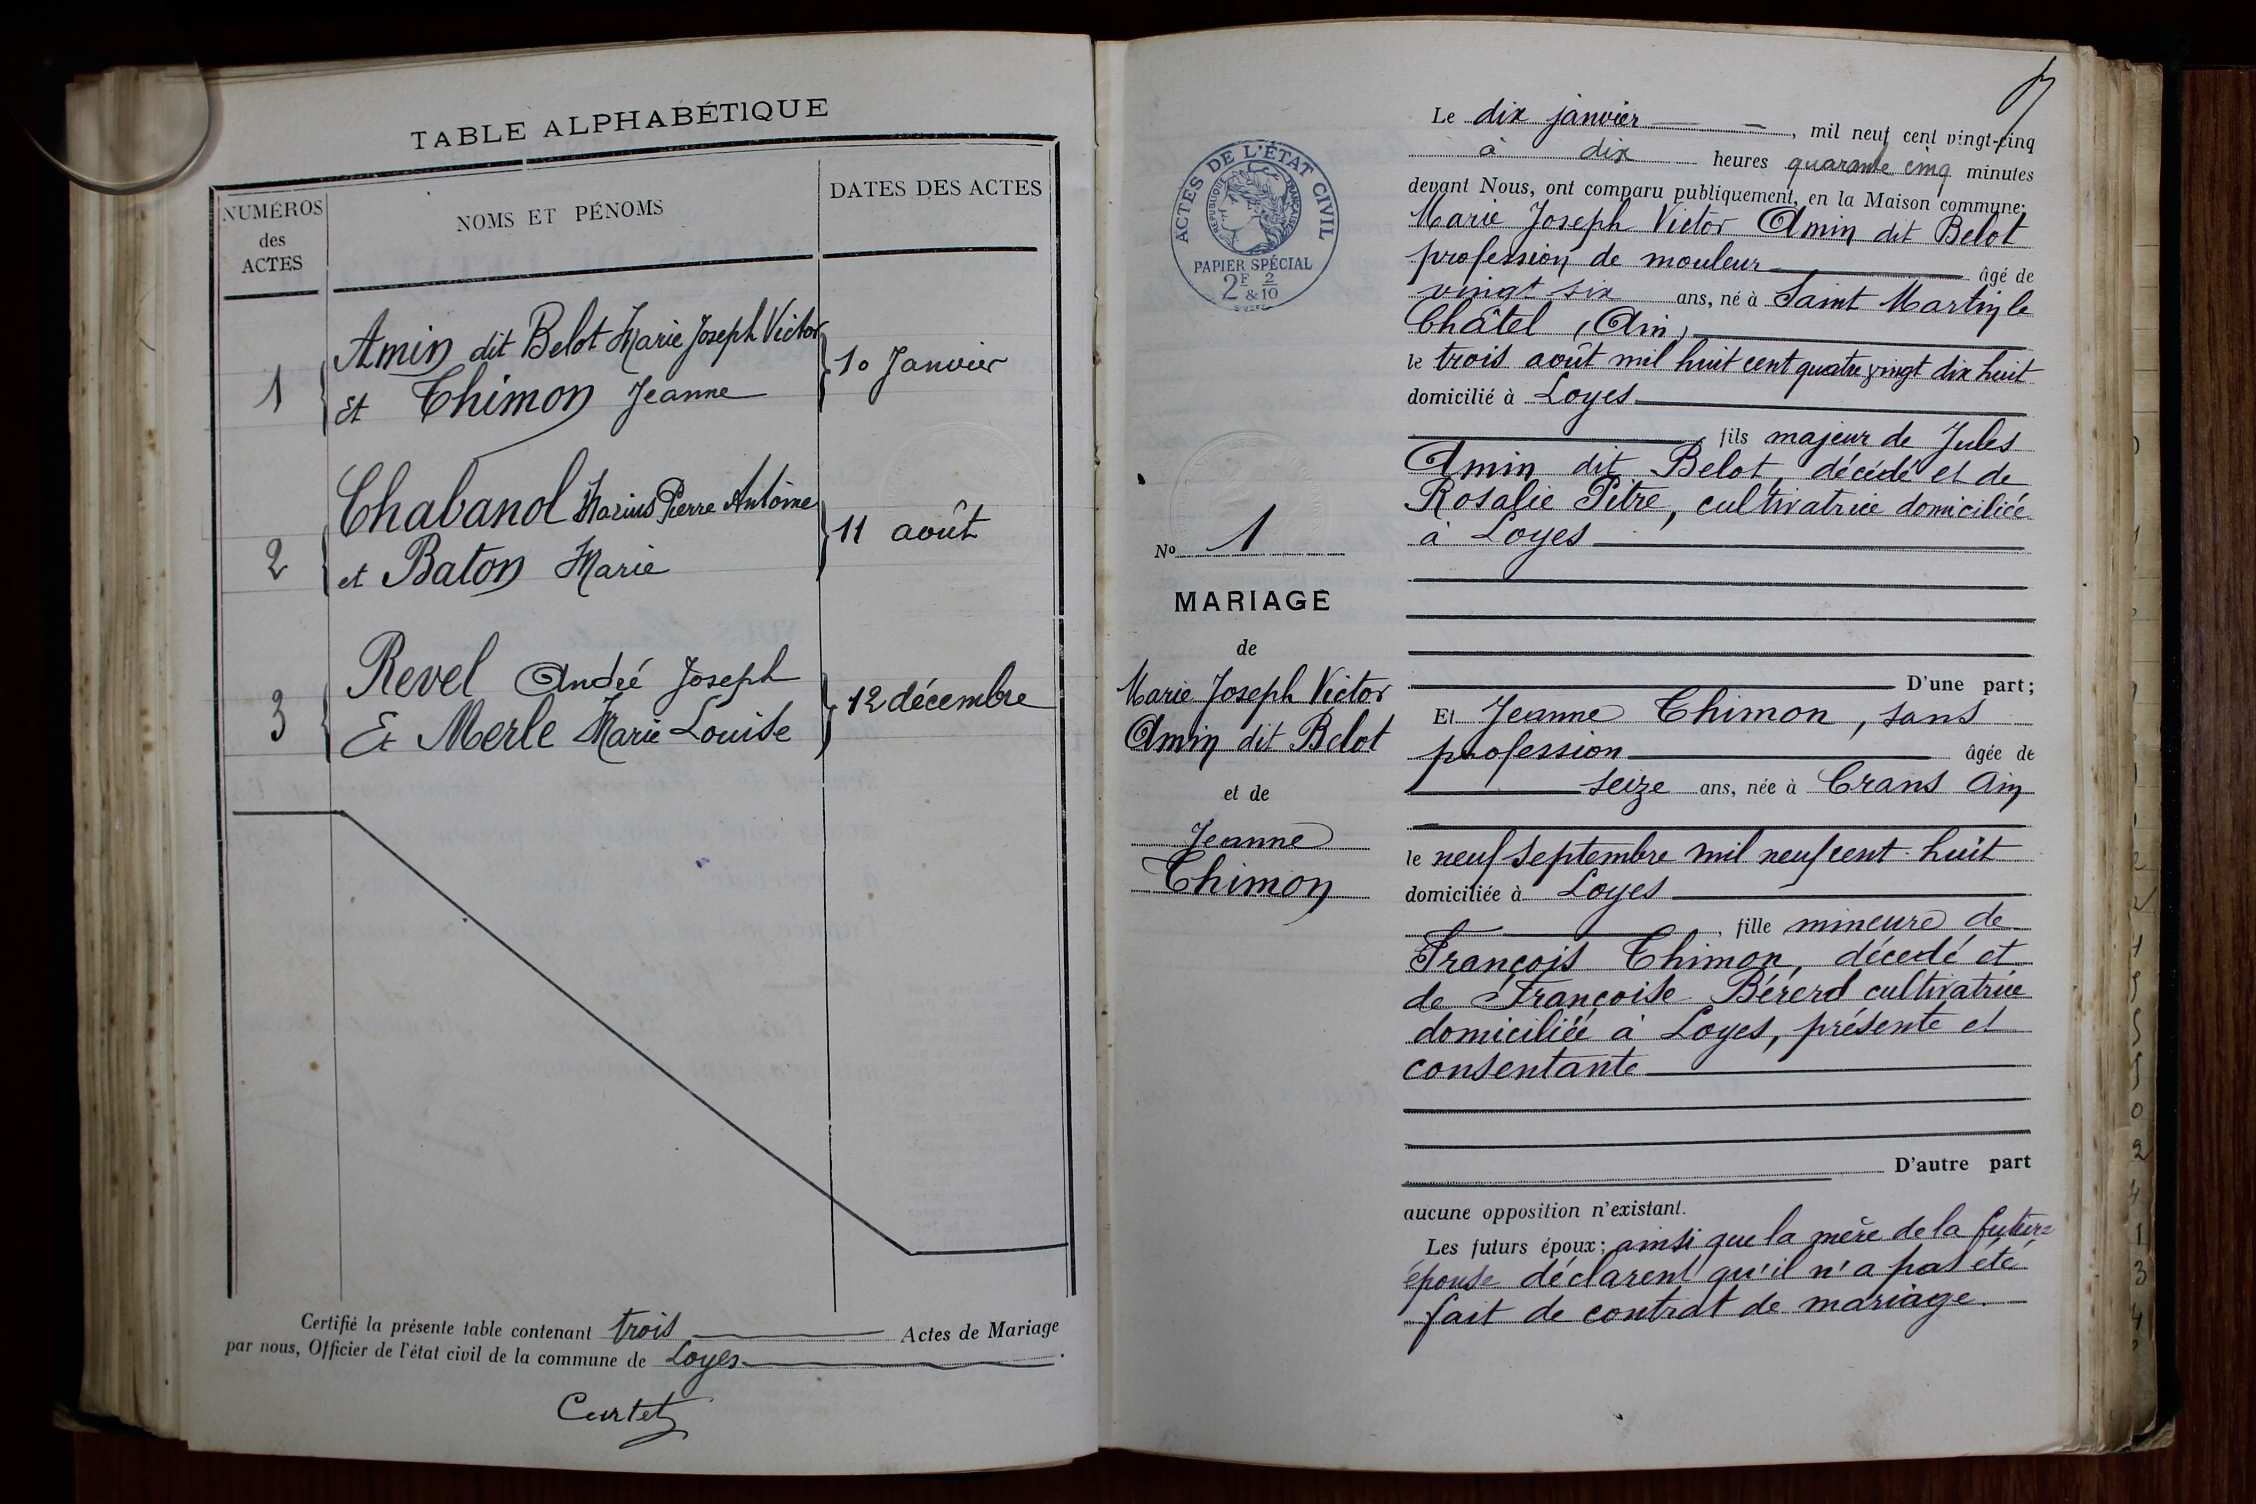 TABLE ALPHABÉTIQUE
NUMÉROS
des
ACTES
NOMS ET PÉNOMS
DATES DES ACTES
1
Amin dit Belot Marie Joseph Victor
et Thimon Jeanne
10 Janvier
2
Chabanol Marius Pierre Antoine
et Baton Marie
11 août
3
Revel André Joseph
Et Merle Marie Louise
12 décembre
Certifié la présente table contenant trois Actes de Mariage
par nous, Officier de l'état civil de la commune de Loyes.
Curtet
ACTES DE L'ÉTAT CIVIL
RÉPUBLIQUE FRANÇAISE
PAPIER SPÉCIAL
2F & 2/10
No 1
MARIAGE
de
Marie Joseph Victor
Amin dit Belot
et de
Jeanne
Thimon
Le dix janvier, mil neuf cent vingt-cinq
à dix heures quarante cinq minutes
devant Nous, ont comparu publiquement, en la Maison commune:
Marie Joseph Victor Amin dit Belot
profession de mouleur âgé de
vingt six ans, né à Saint Martin le
Châtel (Ain)
le trois août mil huit cent quatre vingt dix huit
domicilié à Loyes
, fils majeur de Jules
Amin dit Belot, décédé et de
Rosalie Pitre, cultivatrice domiciliée
à Loyes
D'une part;
Et Jeanne Thimon, sans
profession âgée de
seize ans, née à Crans Ain
le neuf septembre mil neuf cent huit
domiciliée à Loyes
, fille mineure de
François Thimon, décedé et
de Françoise Bérerd cultivatrice
domiciliée à Loyes, présente et
consentante
D'autre part
aucune opposition n'existant.
Les futurs époux; ainsi que la mère de la future
épouse déclarent qu'il n'a pas été
fait de contrat de mariage.